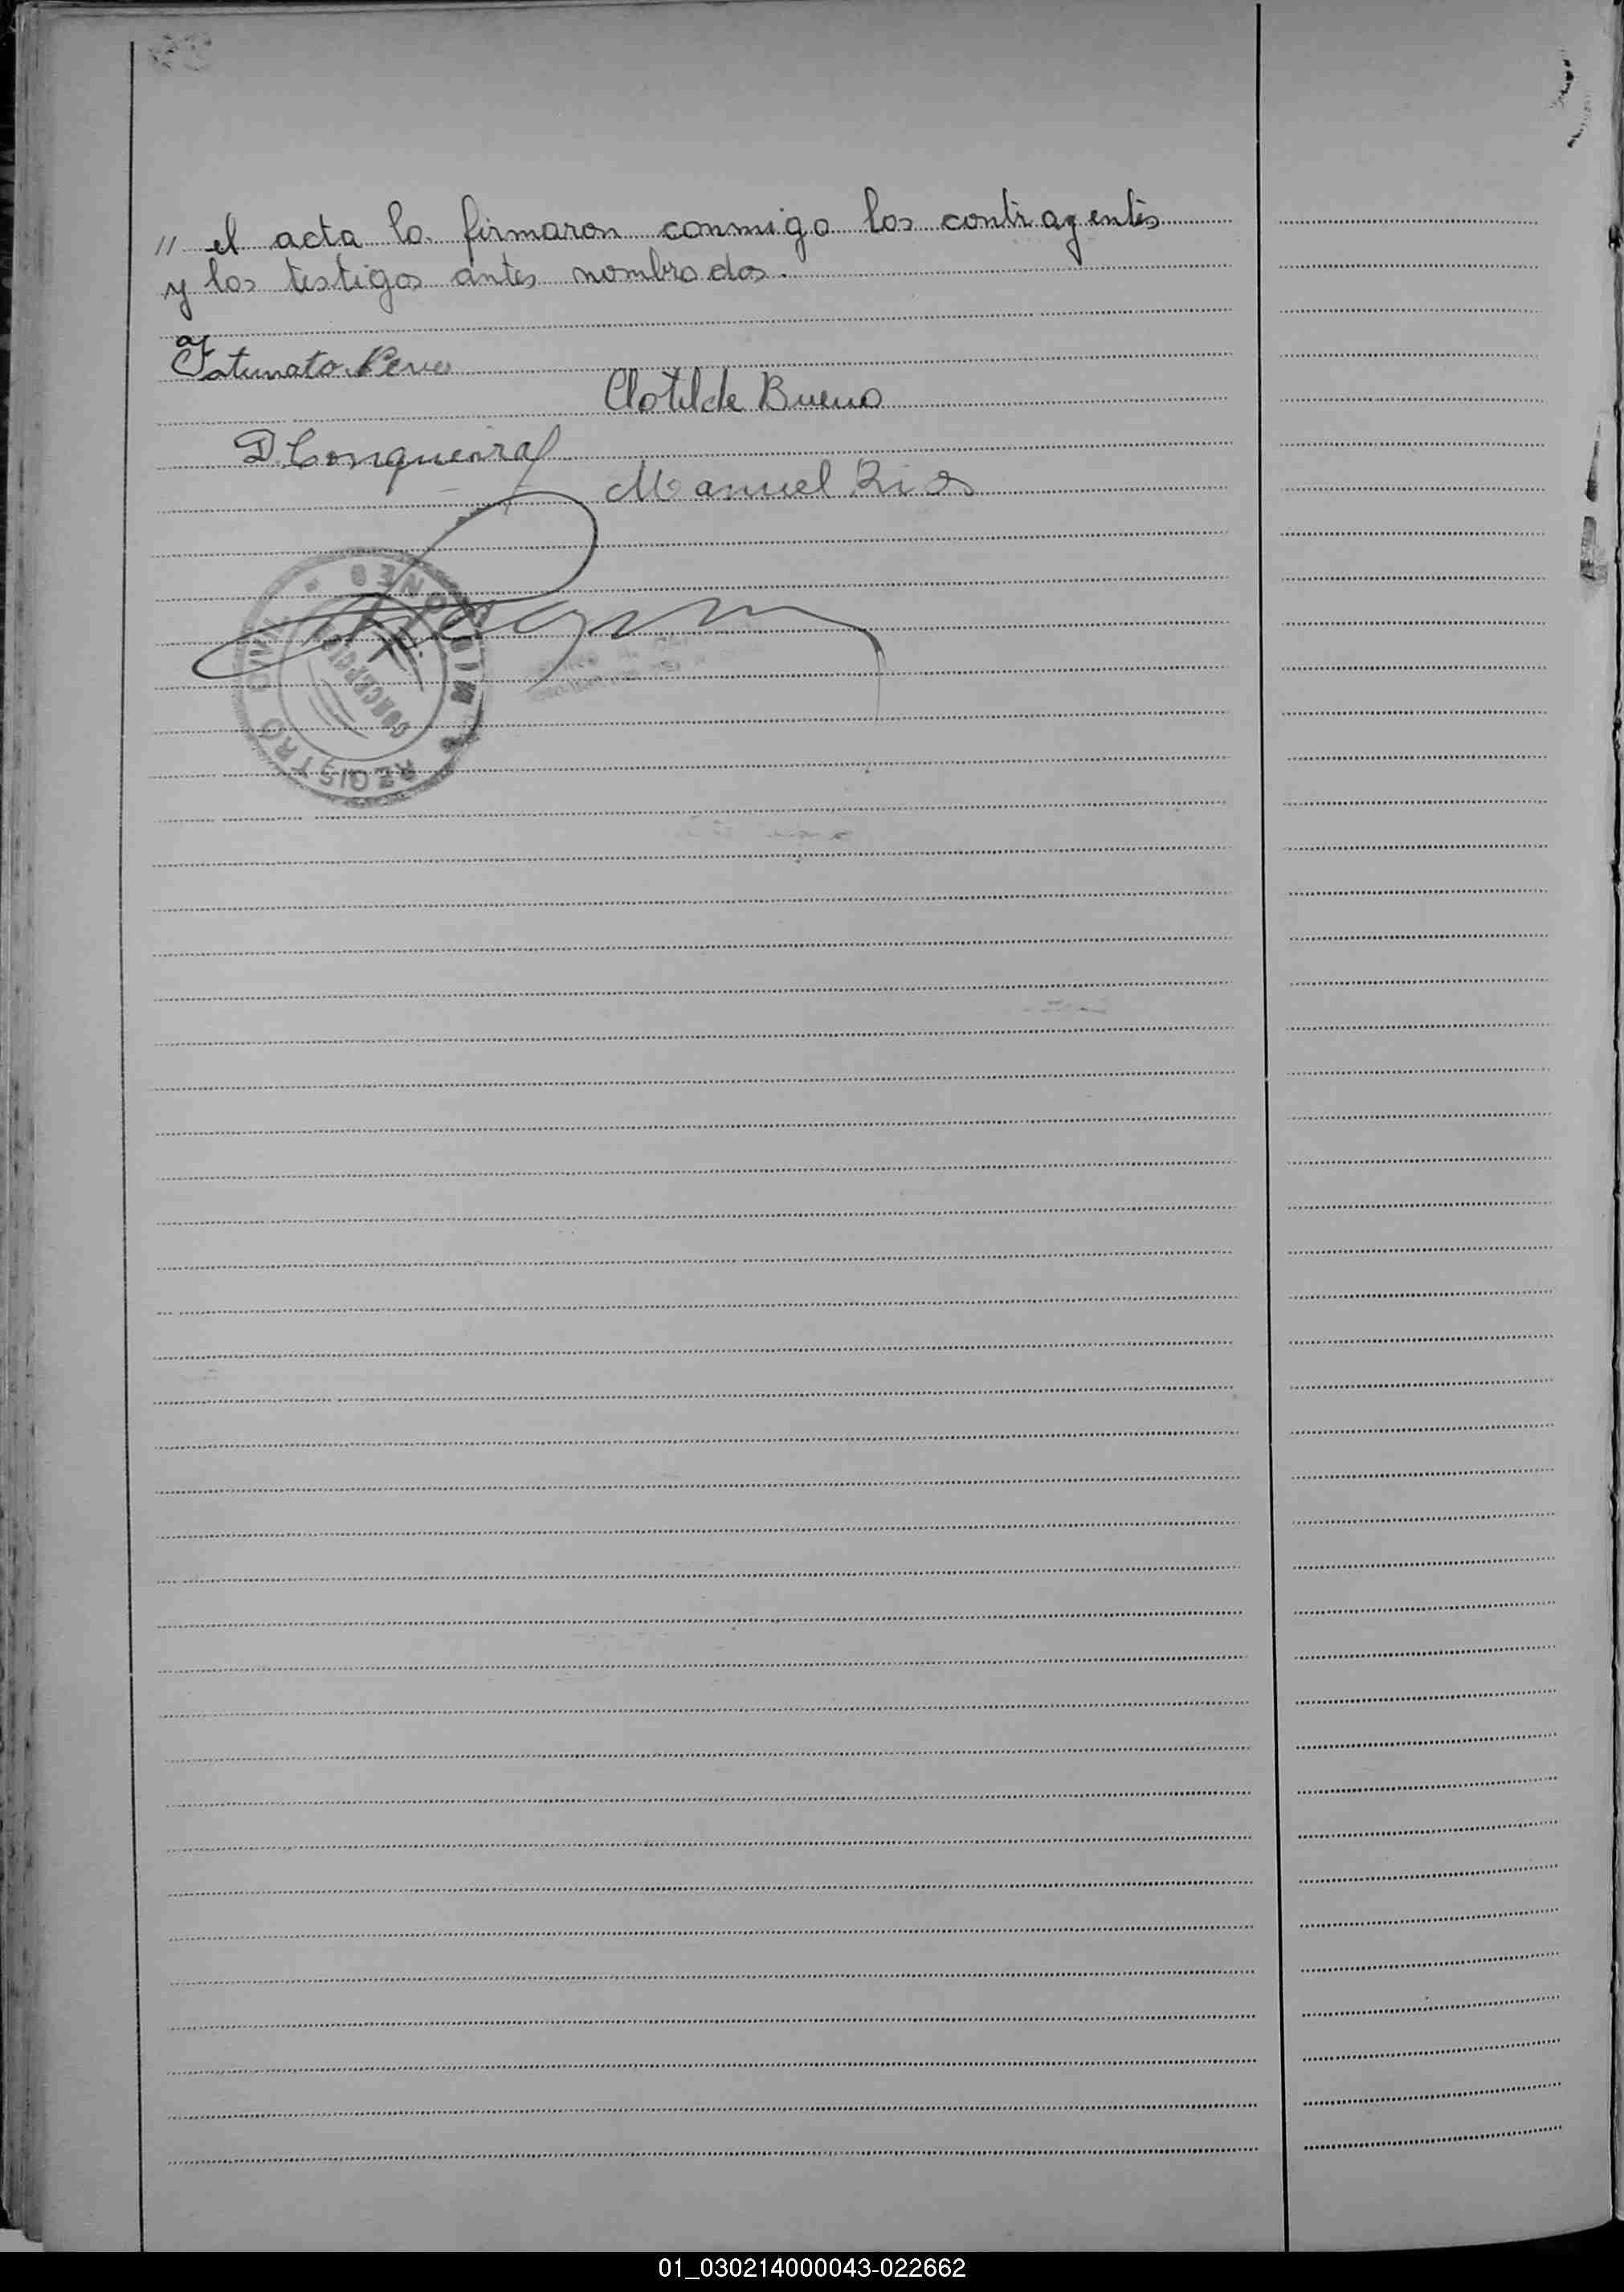 // el acta la firmaron conmigo los contragentes
y los testigos antes nombrados.
Fatunato
Clotilde Bueno
Manuel Rios
REGISTRO CIVIL
CONCEPCION
01_030214000043-022662